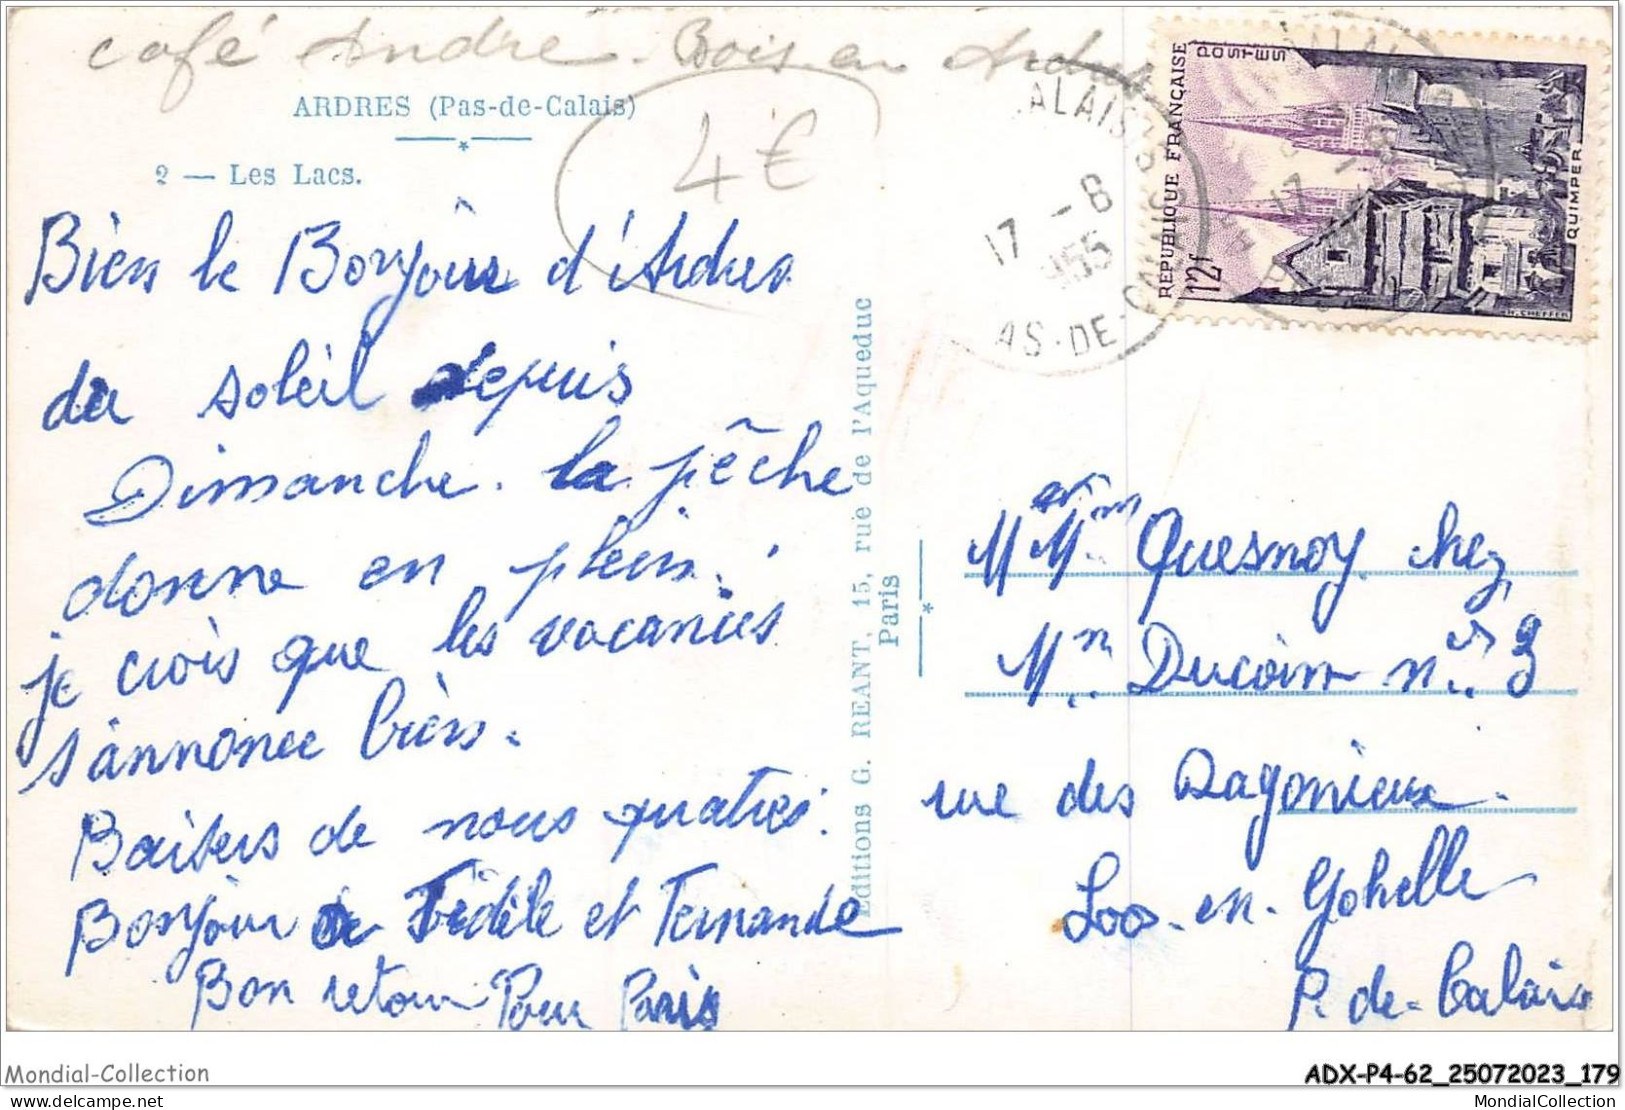 café André. Bois en Ardres
ARDRES (Pas-de-Calais)
2 — Les Lacs.
4€
Bien le Bonjour d'Ardres
du soleil depuis
Dimanche. la pêche
donne en plein.
je crois que les vacances
s'annonce bien.
Baisers de nous quatres.
Bonjour de Fidèle et Fernande
Bon retour Pour Paris
Editions G. REANT, 15, rue de l'Aqueduc
Paris
ALAIS
17 -8
1955
AS-DE-CALAIS
REPUBLIQUE FRANÇAISE
POSTES
12f
QUIMPER
H. CHEFFER
M et Mm Quesnoy chez
Mn Ducoin n° 3
rue des Dagonieux.
Loos-en-Gohelle
P. de-Calais
Mondial-Collection
ADX-P4-62_25072023_179
www.delcampe.net
MondialCollection